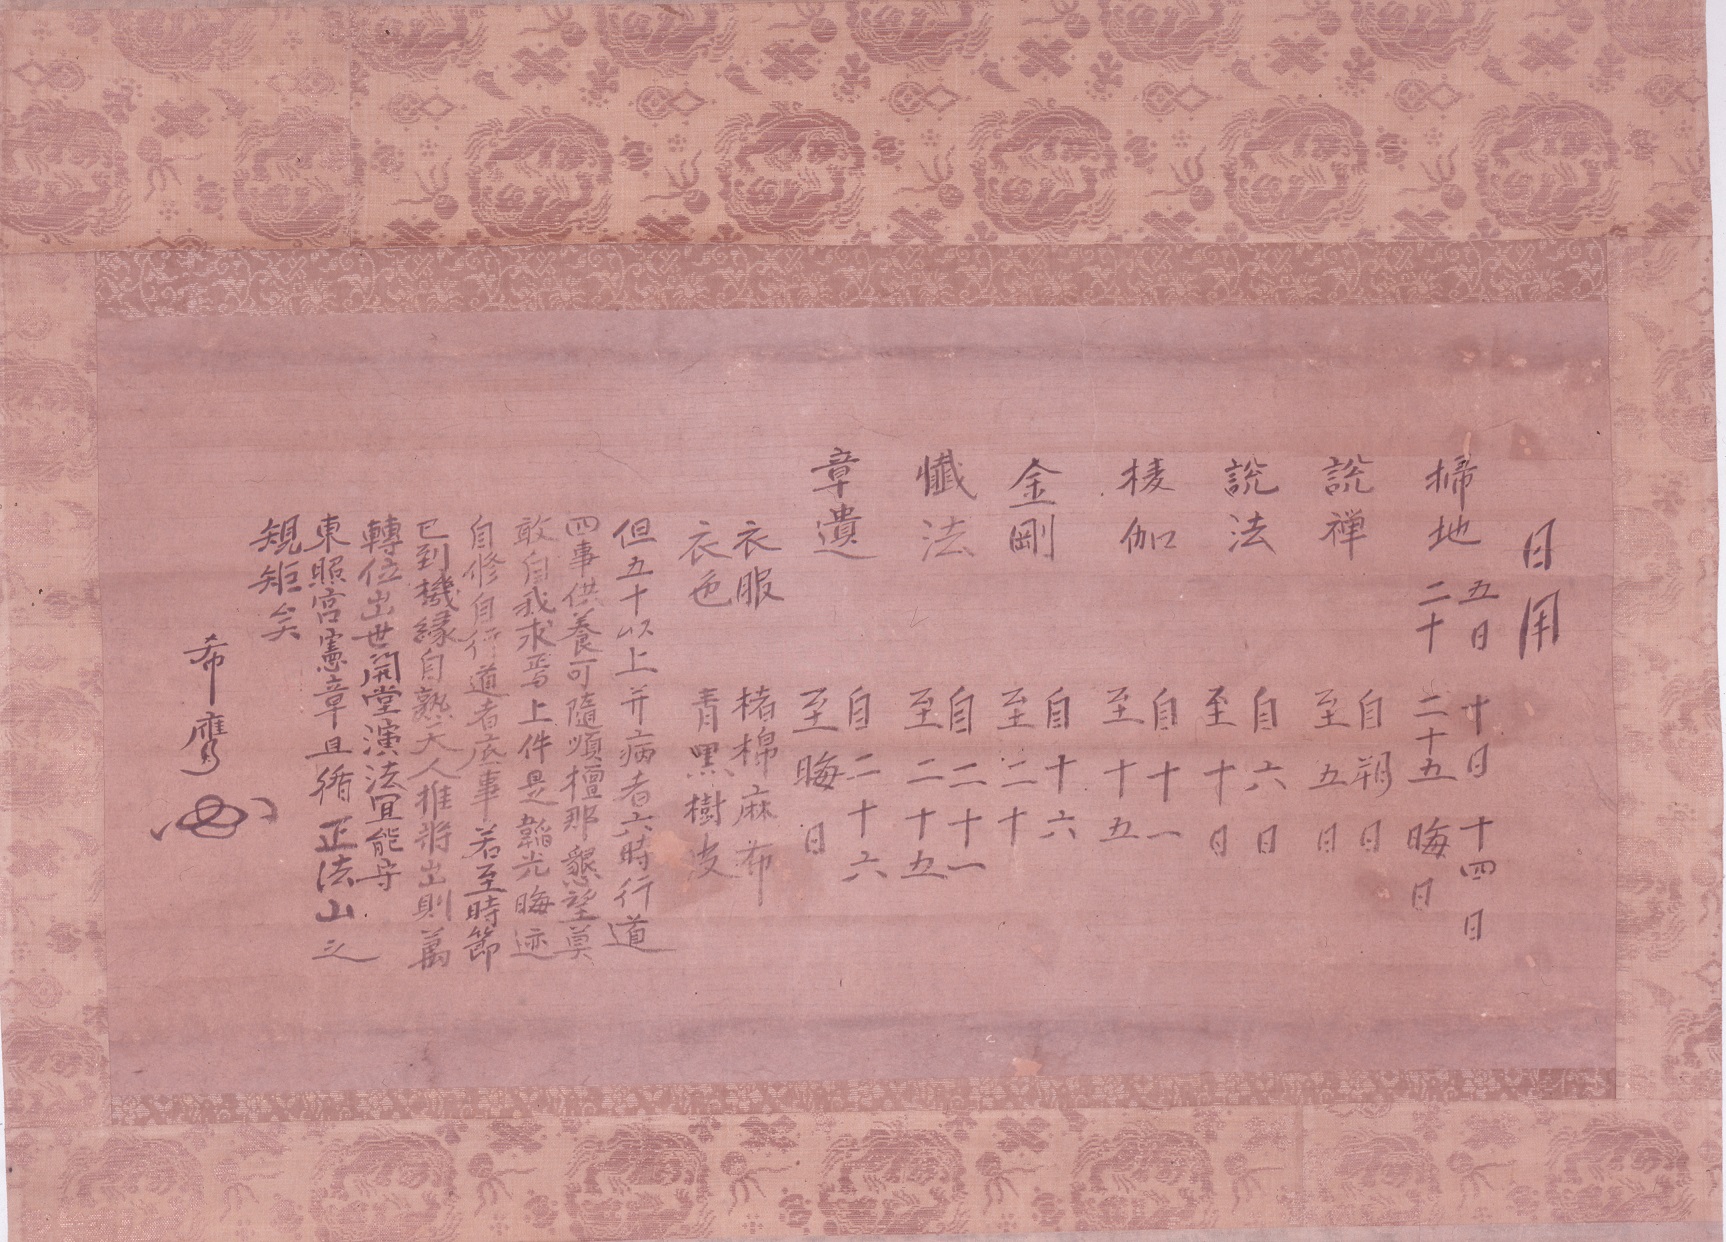 日用
掃地 五日 十日 十四日
二十 二十五 晦日
説禅 自朔日
至五日
説法 自六日
至十日
棱伽 自十一
至十五
金剛 自十六
至二十
懺法 自二十一
至二十五
遺章 自二十六
至晦日
衣服 楮棉麻布
衣色 青黒樹皮
但五十以上并病者六時行道
四事供養可隨順檀那懇望莫
敢自我求焉上件是韜光晦迹
自修自行道者底事若至時節
已到機緣自熟天人推將出則萬
轉位出世開堂演法冝能守
東照宮憲章且循正法山之
規矩矣
希膺